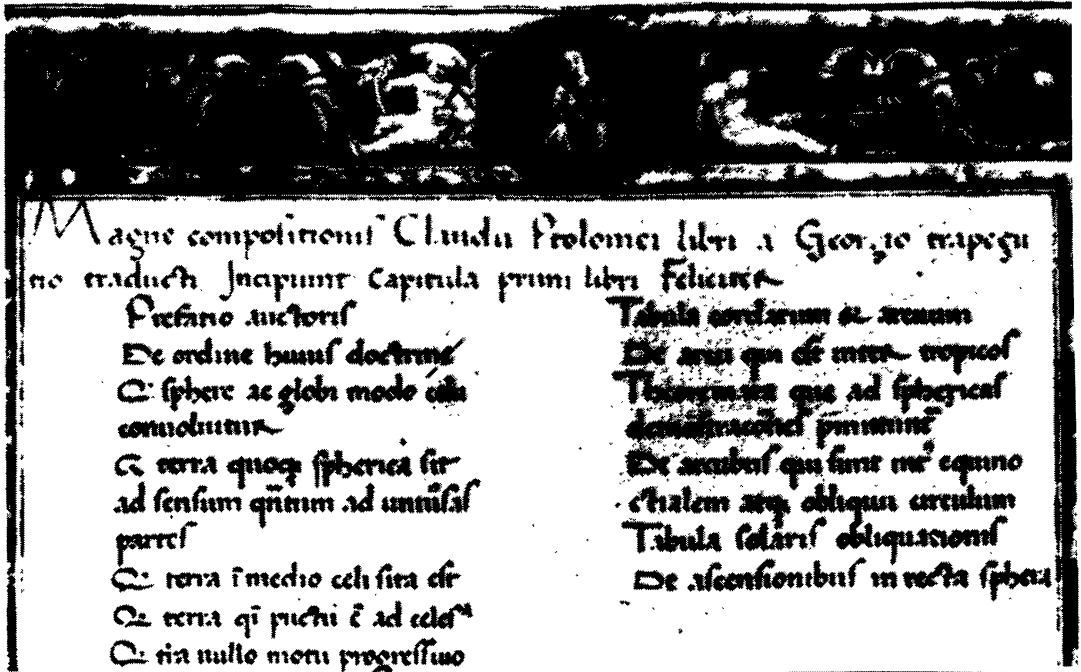 Magne compositionis Claudii Ptolomei libri a Georgio trapezu
tio traducti Incipiunt Capitula primi libri Feliciter
Prefatio auctoris
De ordine huius doctrine
Q sphere ac globi modo celum
conuoluitur
Q terra quoque spherica sit
ad sensum quantum ad uniuersas
partes
Q terra i medio celi sita est
Q terra qi puncti e ad celes
Q terra nullo motu progressiuo
Tabula cordarum et arcuum
De arcu qui est inter tropicos
Theoremata que ad sphericas
demonstrationes
De arcubus qui sunt inter equino
ctialem atque obliquum circulum
Tabula solaris obliquationis
De ascensionibus in recta sphera